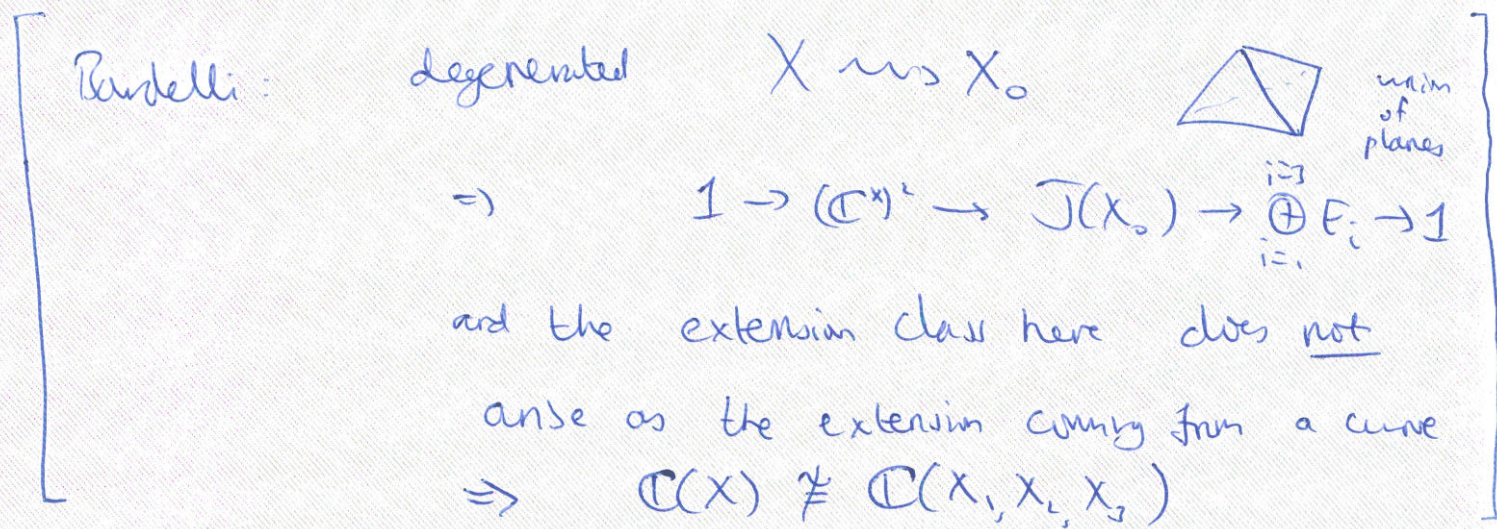 Bardelli: degenerated X ⇝ X₀
union
of
planes
⇒ 1 → (ℂˣ)² → J(X₀) → ⊕_{i=1}^{i=3} E_i → 1
and the extension class here does not
arise as the extension coming from a curve
⇒ ℂ(X) ≇ ℂ(X₁, X₂, X₃)